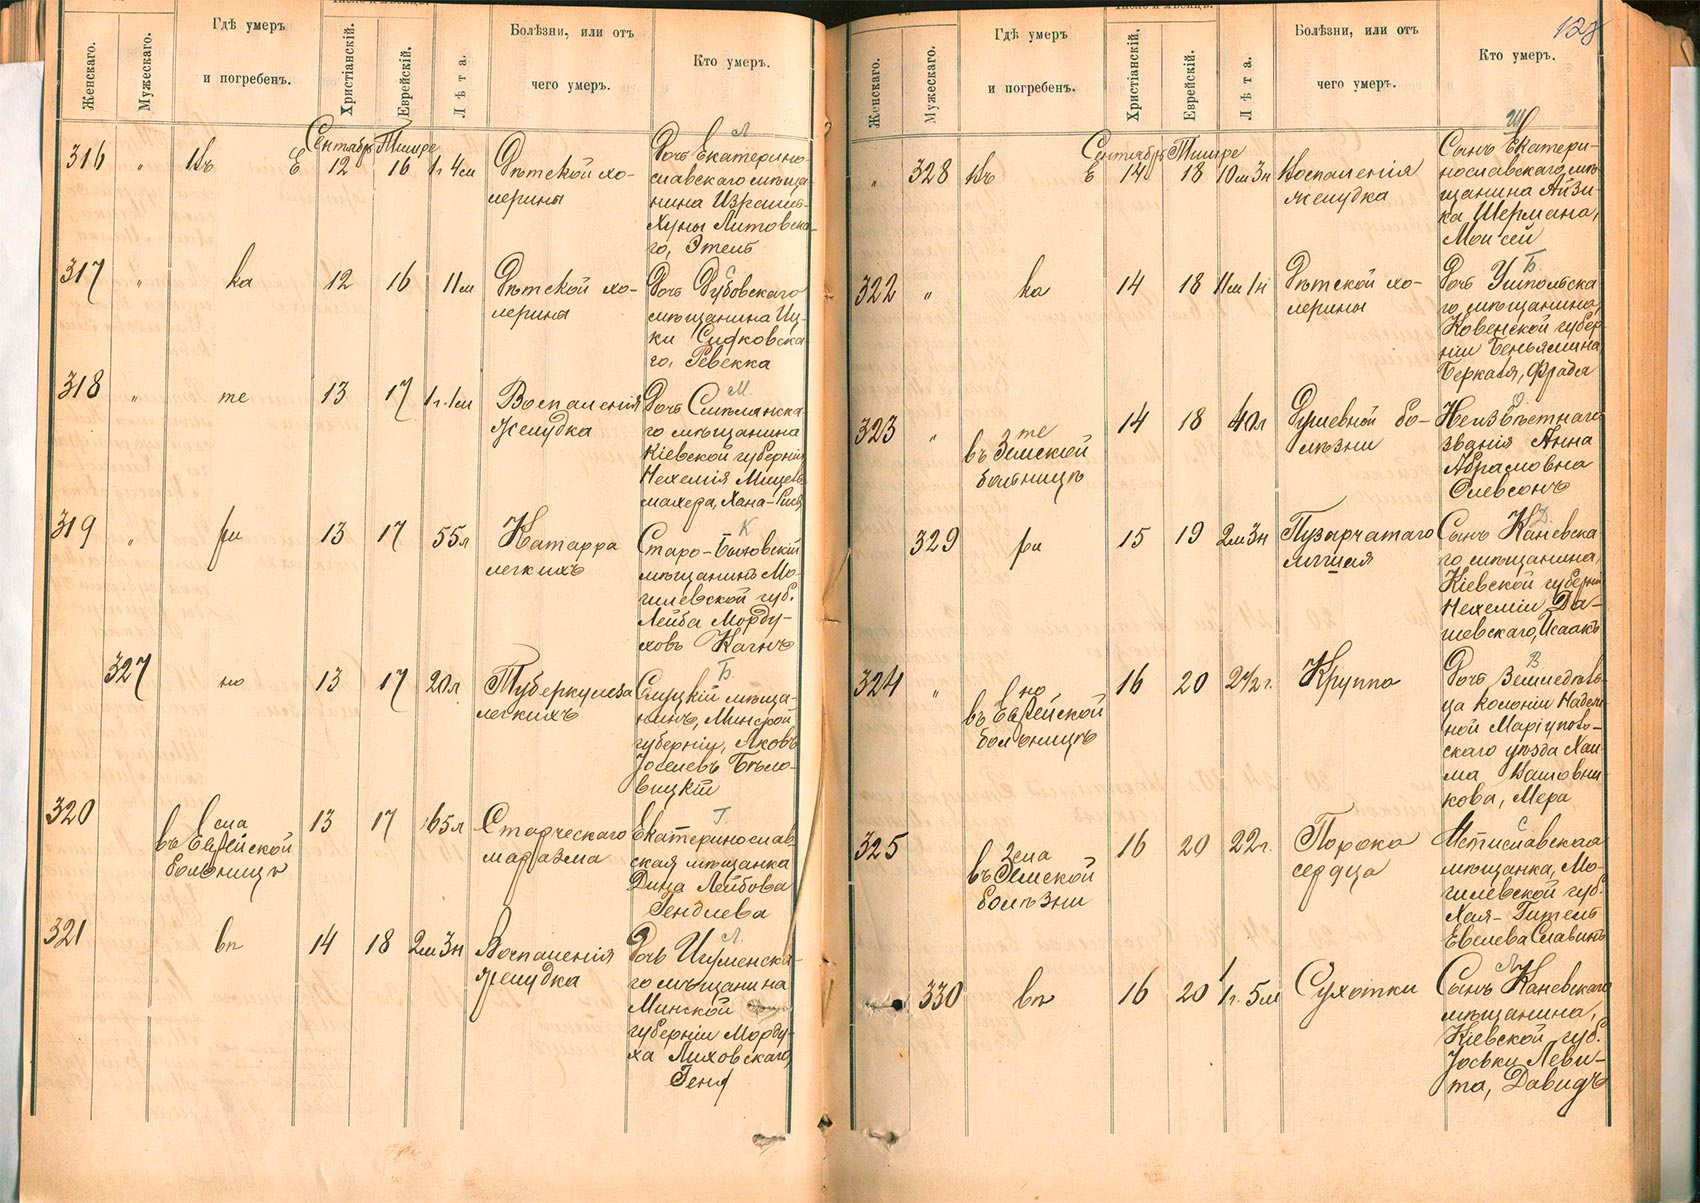 Женскаго.
Мужескаго.
Гдѣ умеръ
и погребенъ.
Христіанскій.
Еврейскій.
Лѣта.
Болѣзни, или отъ
чего умеръ.
Кто умеръ.
Сентябрь Тишре
316 " Въ Е 12 16 1г 4м
Дѣтской хо-
лерины
Л
Дочь Екатерино-
славскаго мѣща-
нина Израиль-
Хуны Литовска-
го, Этель
317 " ка 12 16 11м
Дѣтской хо-
лерины
С
Дочь Дубовскаго
мѣщанина Иц-
ки Сидковска-
го, Ревекка
318 " те 13 17 1г. 1м
Воспаленія
желудка
М
Дочь Смѣлянска-
го мѣщанина
Кіевской губерніи
Нехемія
махера, Хана-
319 " ри 13 17 55л
Катарра
легкихъ
К
Старо-Быховскій
мѣщанинъ Мо-
гилевской губ.
Лейба Морду-
ховъ Каганъ
327 но 13 17 20л
Туберкулеза
легкихъ
Б
Слуцкій мѣща-
нинъ, Минской
губерніи, Яковъ
Іоселевъ Бѣло-
вицкій
320 сла
въ Еврейской
больницѣ
13 17 65л
Старческаго
маразма
Г
Екатеринослав-
ская мѣщанка
Дина Лейбова
Гендлева
321 вп 14 18 2м 3н
Воспаленія
желудка
Л
Дочь Игуменска-
го мѣщанина
Минской
губерніи Морду-
ха Лиховскаго,
Геня
128
Женскаго.
Мужескаго.
Гдѣ умеръ
и погребенъ.
Христіанскій.
Еврейскій.
Лѣта.
Болѣзни, или отъ
чего умеръ.
Кто умеръ.
Сентябрь Тишре
" 328 Въ Е 14 18 10м 3н
Воспаленія
желудка
Ш
Сынъ Екатери-
нославскаго мѣ-
щанина Айзи-
ка Шермана,
Моисей
322 " ка 14 18 11м 1н
Дѣтской хо-
лерины
Б
Дочь Ушпольска-
го мѣщанина,
Ковенской губер-
ніи Беньямина
Беркаля, Фрада
323 " те
въ Земской
больницѣ
14 18 40л
Душевной бо-
лѣзни
О
Неизвѣстнаго
званія Анна
Абрамовна
Олевсонъ
329 ри 15 19 2м 3н
Пузырчатаго
лишая
Д
Сынъ Каневска-
го мѣщанина,
Кіевской губерніи
Нехеміи Да-
шевскаго, Исаакъ
324 " но
въ Еврейской
больницѣ
16 20 2½г.
Круппа
В
Дочь Земледѣль-
ца колоніи Надеж-
ной Маріуполь-
скаго уѣзда Хаи-
ма Вашовни-
кова, Мера
325 сла
въ Земской
болѣзни
16 20 22г.
Порока
сердца
С
Мстиславская
мѣщанка, Мо-
гилевской губ.
Хая-Гитель
Евелева Славинъ
330 вп 16 20 1г. 5м
Сухотки
Л
Сынъ Каневскаго
мѣщанина,
Кіевской губ.
Іоськи Леви-
та, Давидъ